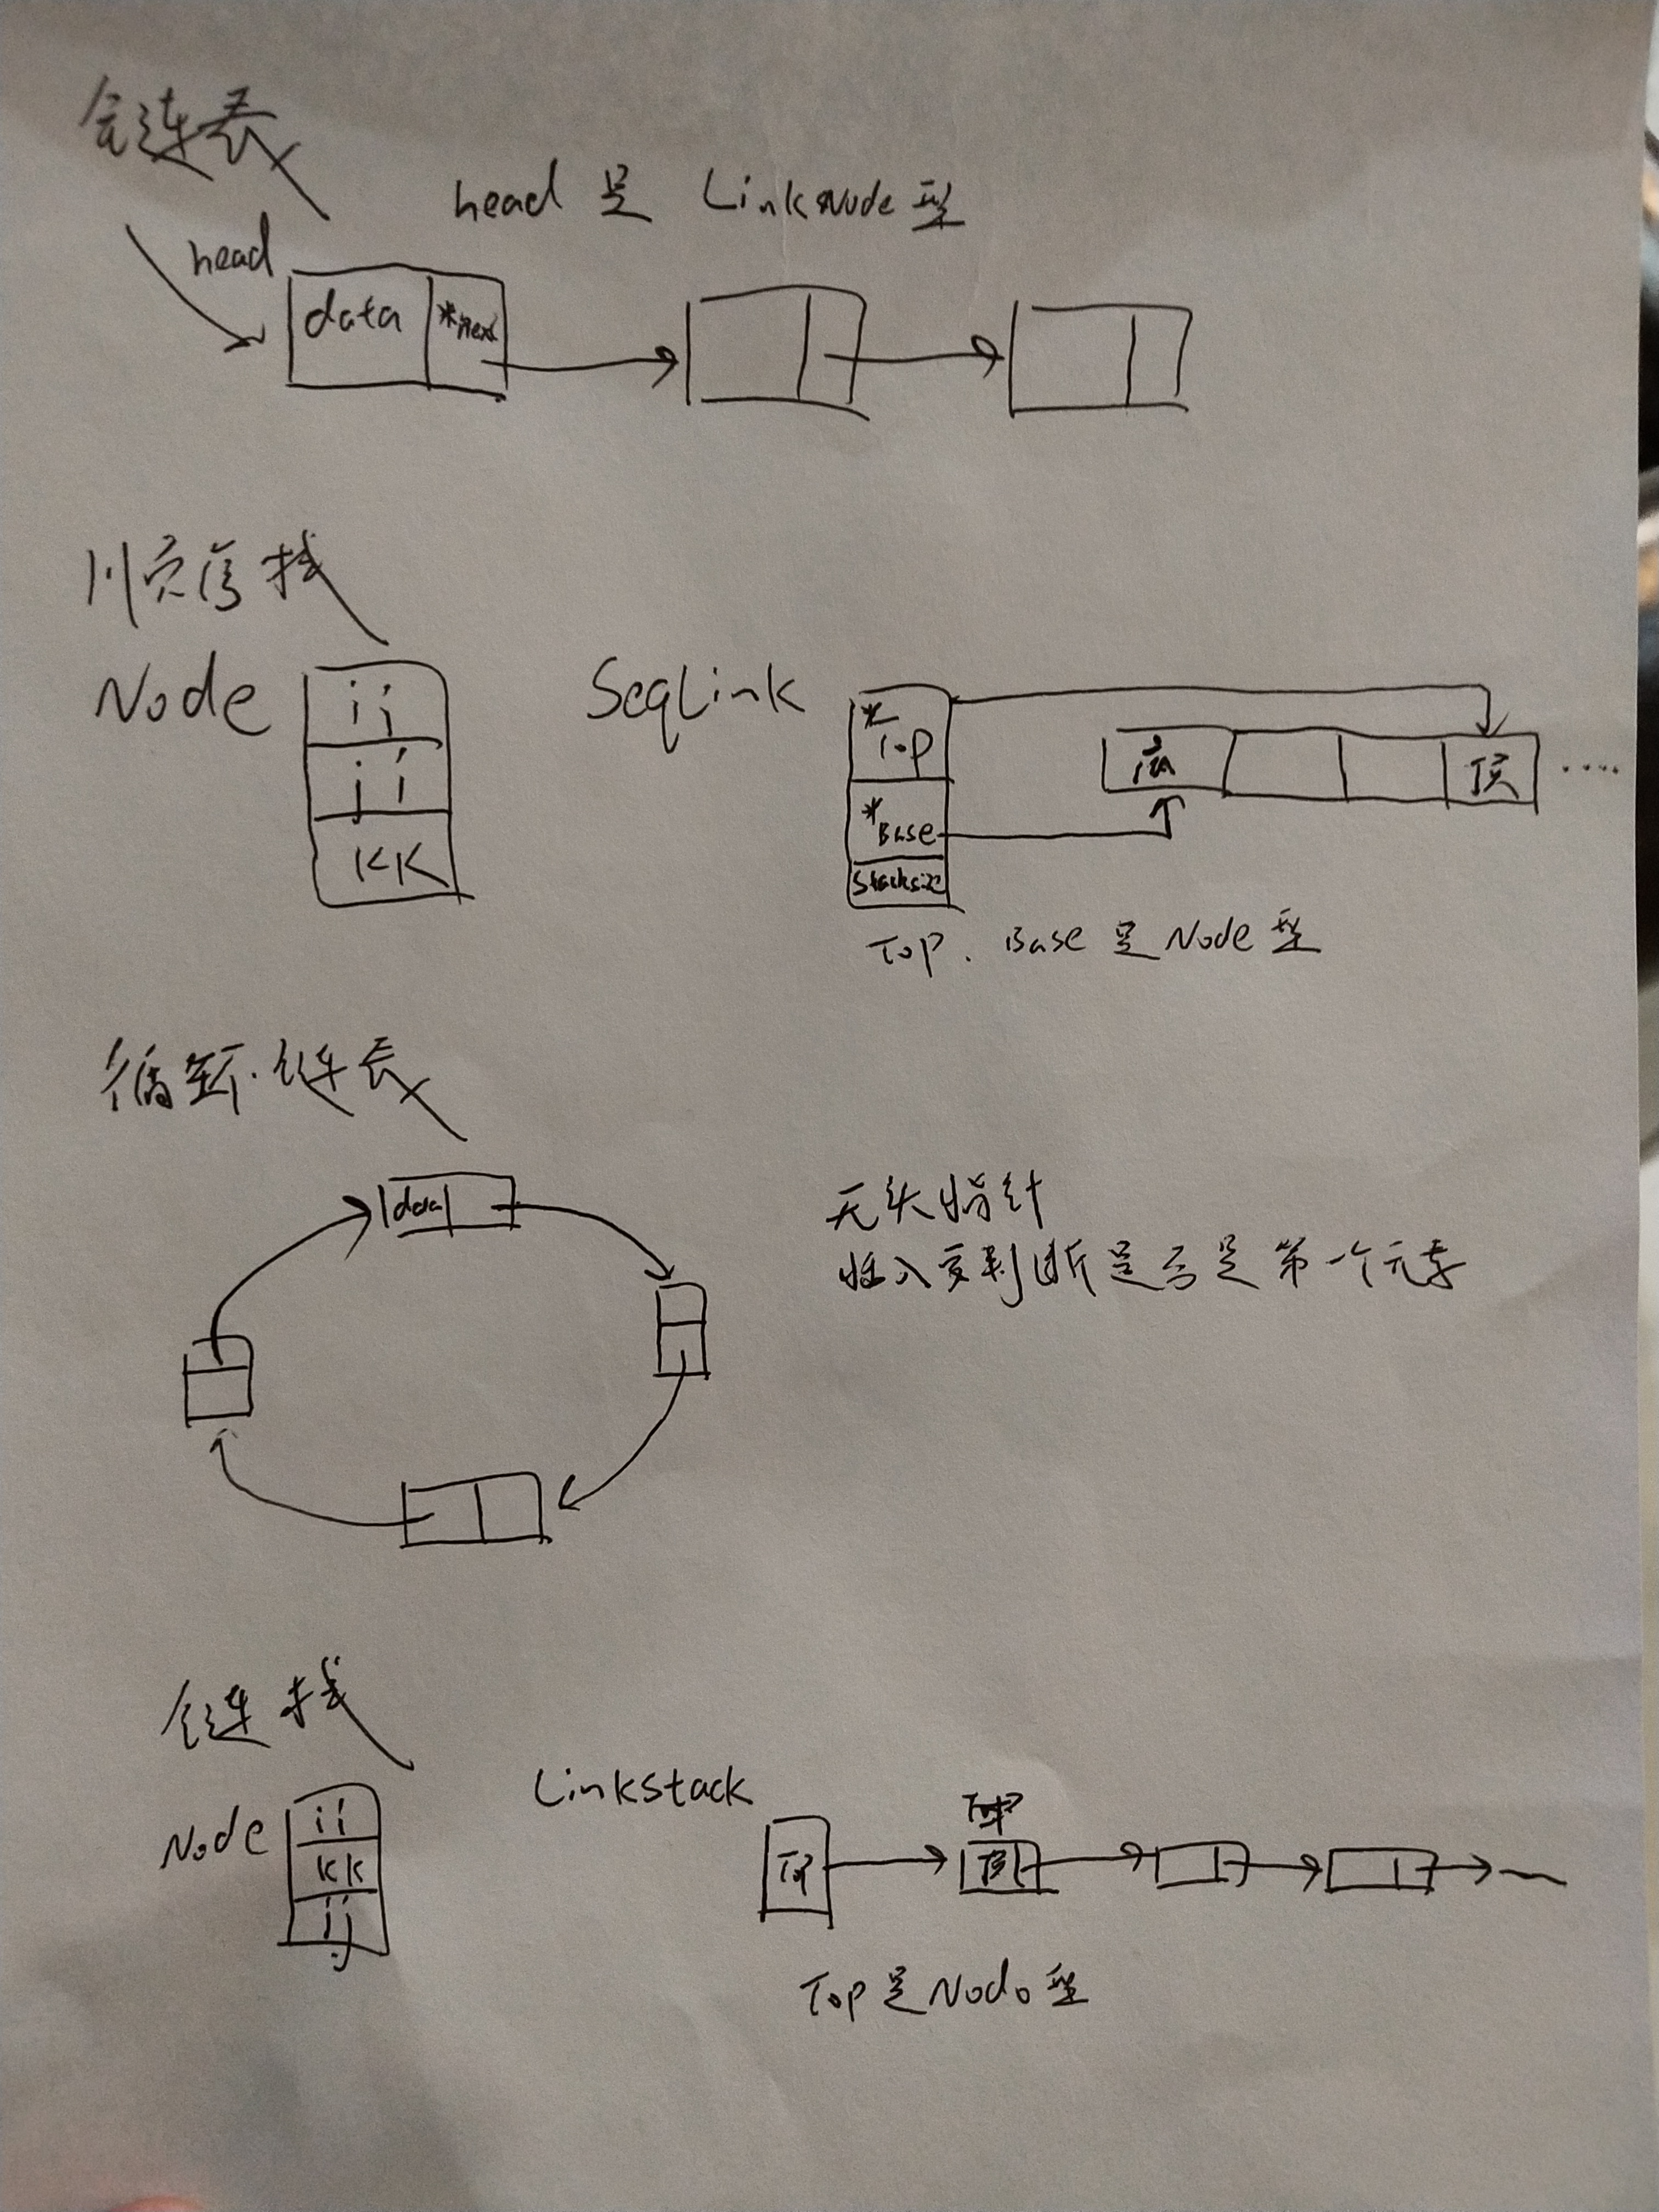 链表
head是LinkNode型
head
data *next
顺序栈
Node
ii
jj
kk
SeqLink
*Top
*Base
Stacksize
底 顶 ....
Top、Base是Node型
循环链表
data
无头指针
插入要判断是否是第一个元素
链栈
Node
ii
kk
jj
LinkStack
Top
Top
顶
Top是Node型